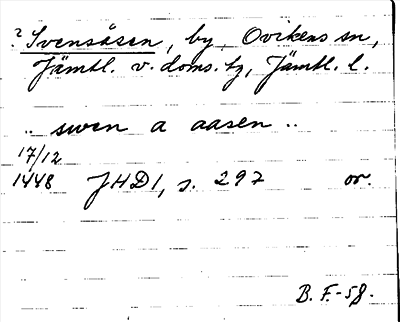 ? Svensåsen, by, Ovikens sn,
Jämtl. v. doms. tg, Jämtl. l.
.. swen a aasen ..
17/12
1448 JHD1, s. 297 or.
B. F.-58.